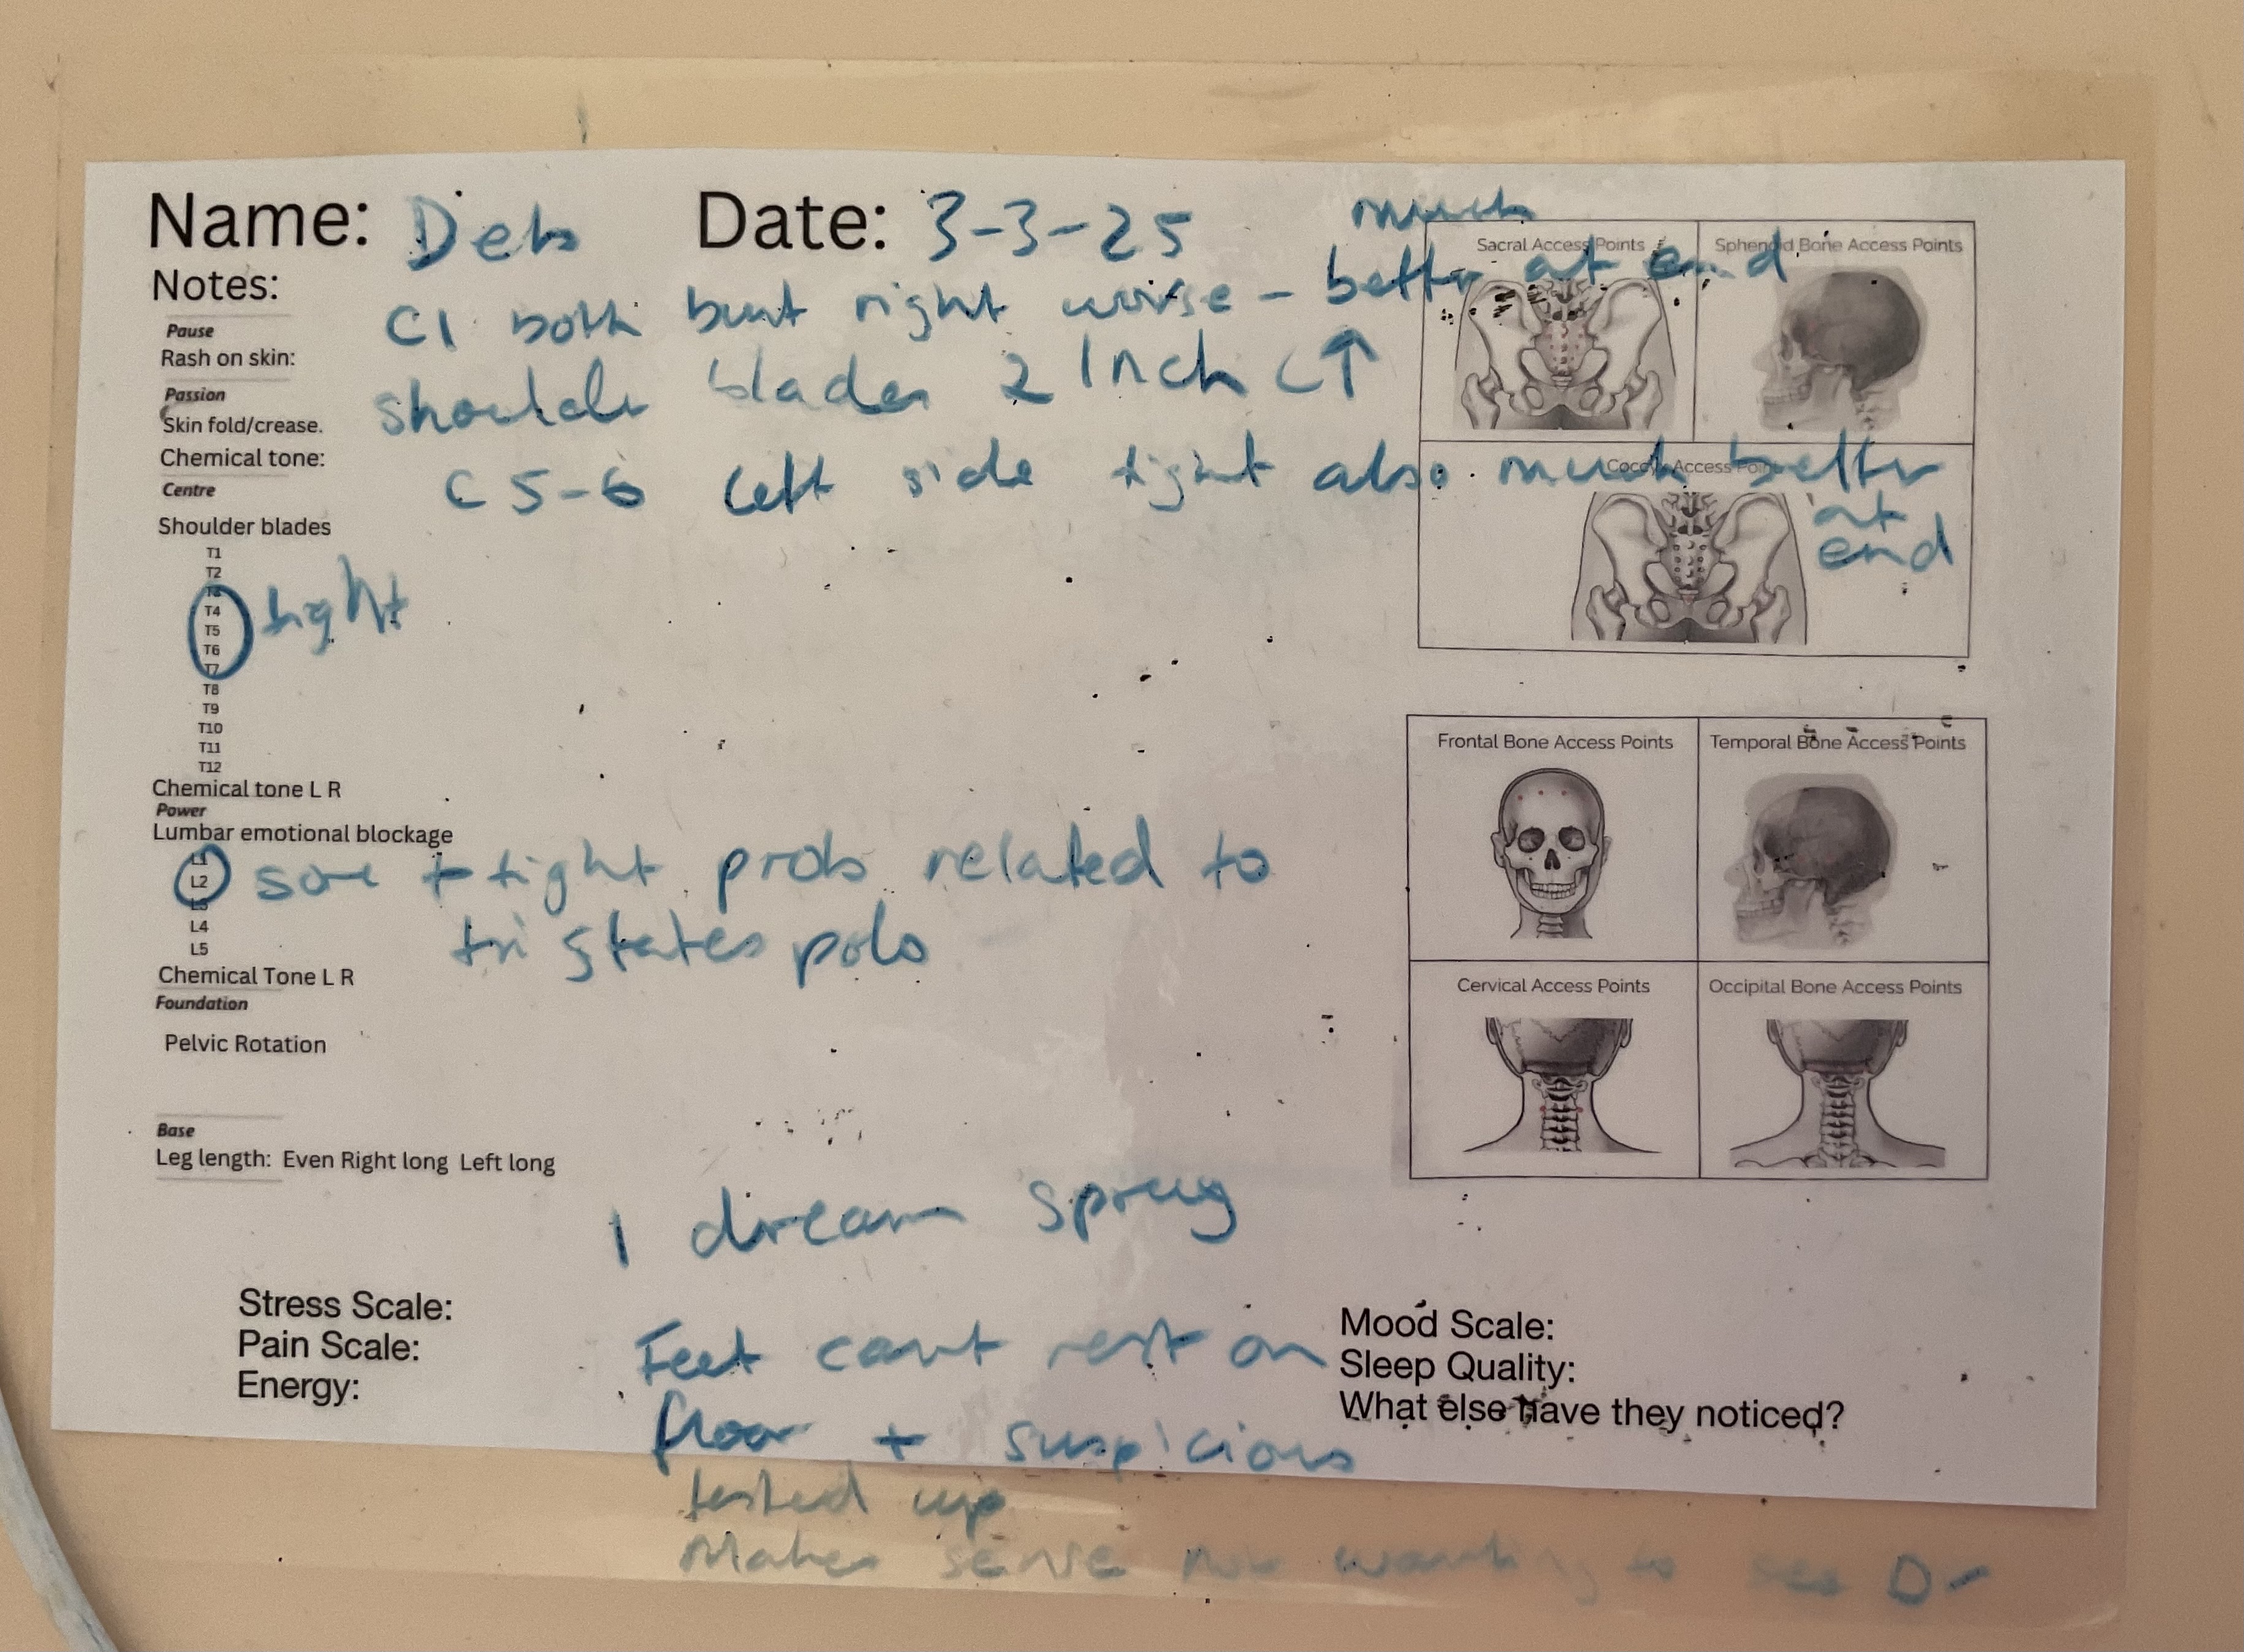 Name: Deb Date: 3-3-25
Notes:
C1 both but right worse - much better at end
Pause
Rash on skin:
shoulder blades 2 Inch L↑
Passion
Skin fold/crease.
Chemical tone:
C5-6 Left side tight also much better at end
Centre
Shoulder blades
T1
T2
T3
T4
T5 tight
T6
T7
T8
T9
T10
T11
T12
Chemical tone L R
Power
Lumbar emotional blockage
L1
L2 sore + tight prob related to
L3
tri states polo
L4
L5
Chemical Tone L R
Foundation
Pelvic Rotation
Base
Leg length: Even Right long Left long
1 dream
Stress Scale:
Pain Scale:
Energy:
Feet cant rest on
floor + suspicious
tested up
Makes sense not wanting to see Dr
Sacral Access Points
Sphenoid Bone Access Points
Coccyx Access Points
Frontal Bone Access Points
Temporal Bone Access Points
Cervical Access Points
Occipital Bone Access Points
Mood Scale:
Sleep Quality:
What else have they noticed?